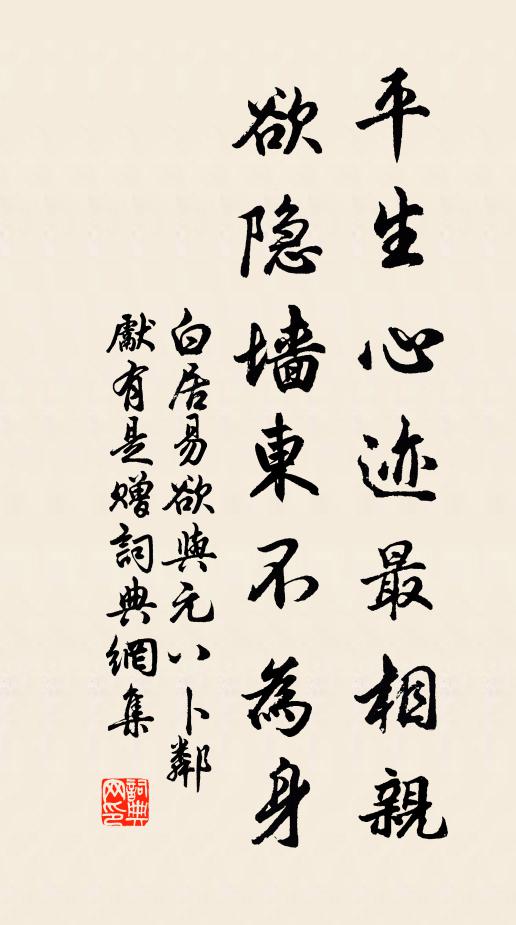 平生心迹最相親
欲隐墙東不為身
白居易欲與元八卜鄰
獻有是贈詞典網集
詞典
网印